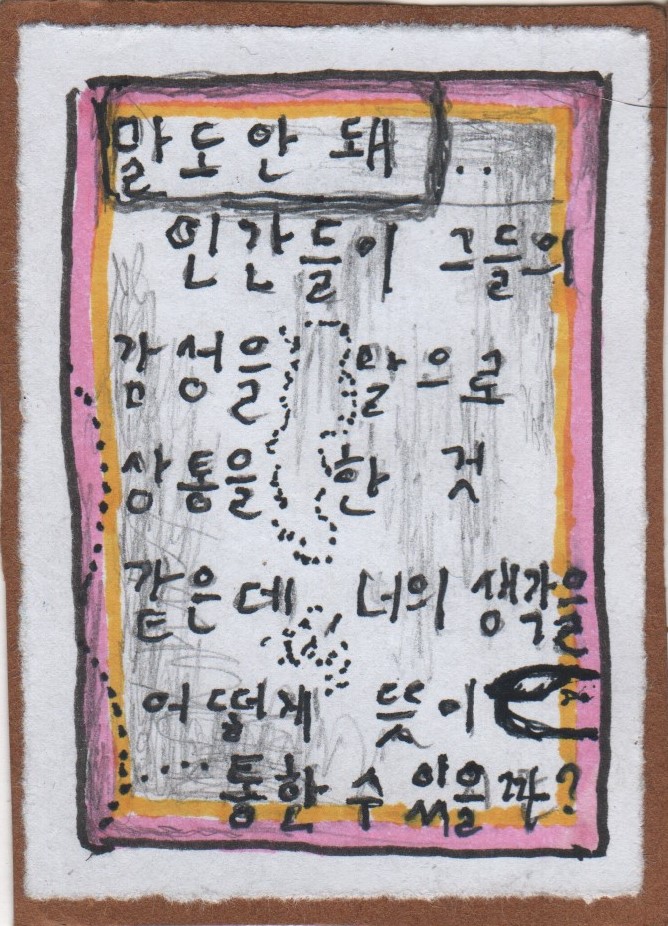 말도안 돼..
인간들이 그들의
감성을 말으로
상통을 한 것
같은데 너의 생각을
어떻게 뜻이
....통한 수 있을까?